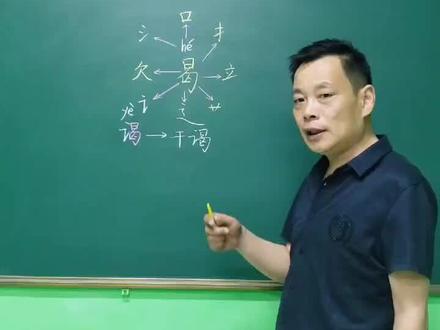 口
氵 hé 扌
欠 曷 立
讠 辶 艹
yè
谒 → 干谒